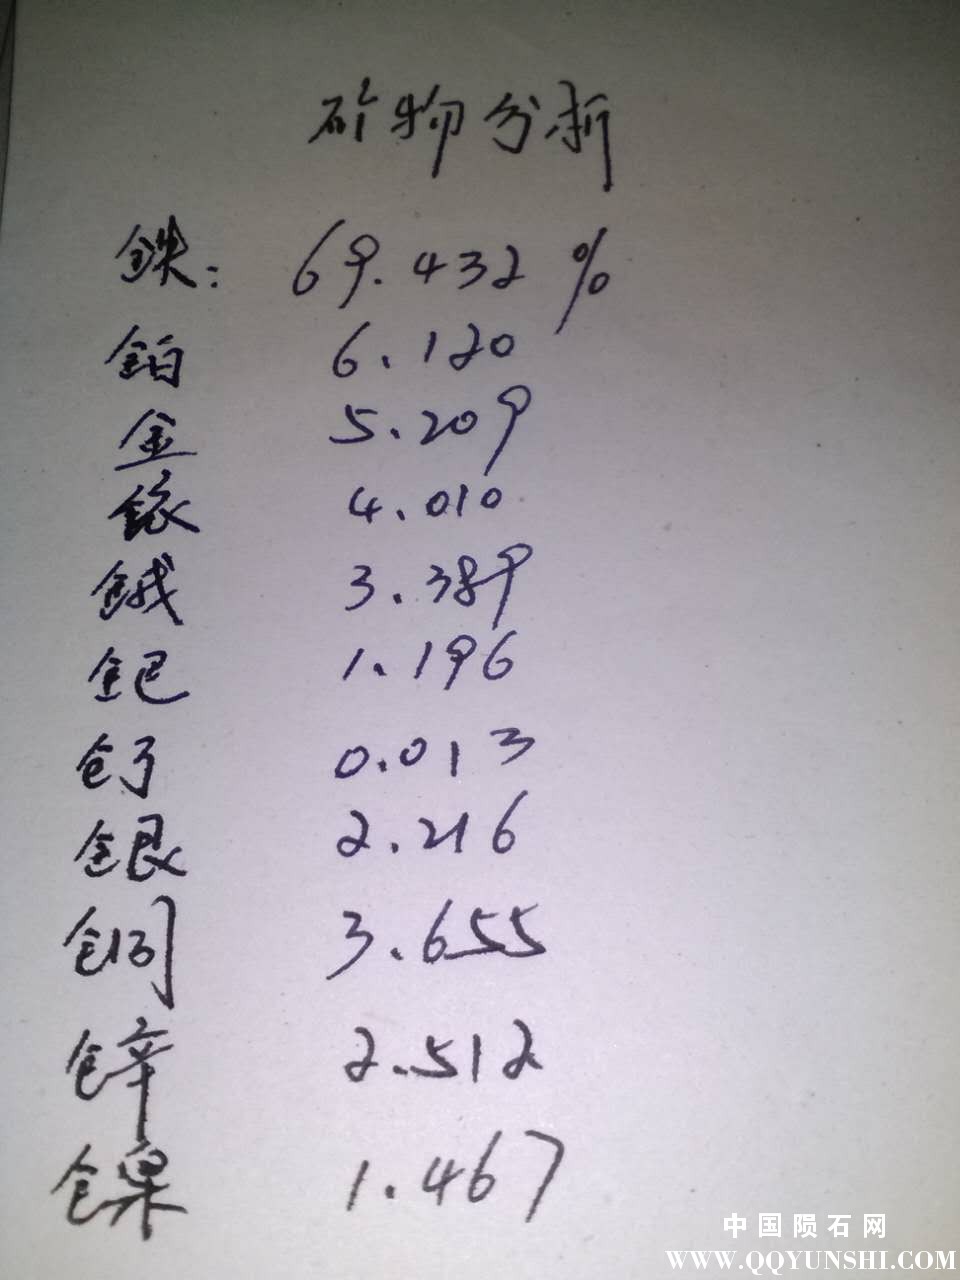 矿物分析
铁: 69.432%
铂 6.120
金 5.209
铱 4.010
锇 3.389
钯 1.196
钌 0.013
银 2.216
铜 3.655
锌 2.512
镍 1.467
中国陨石网
WWW.QQYUNSHI.COM